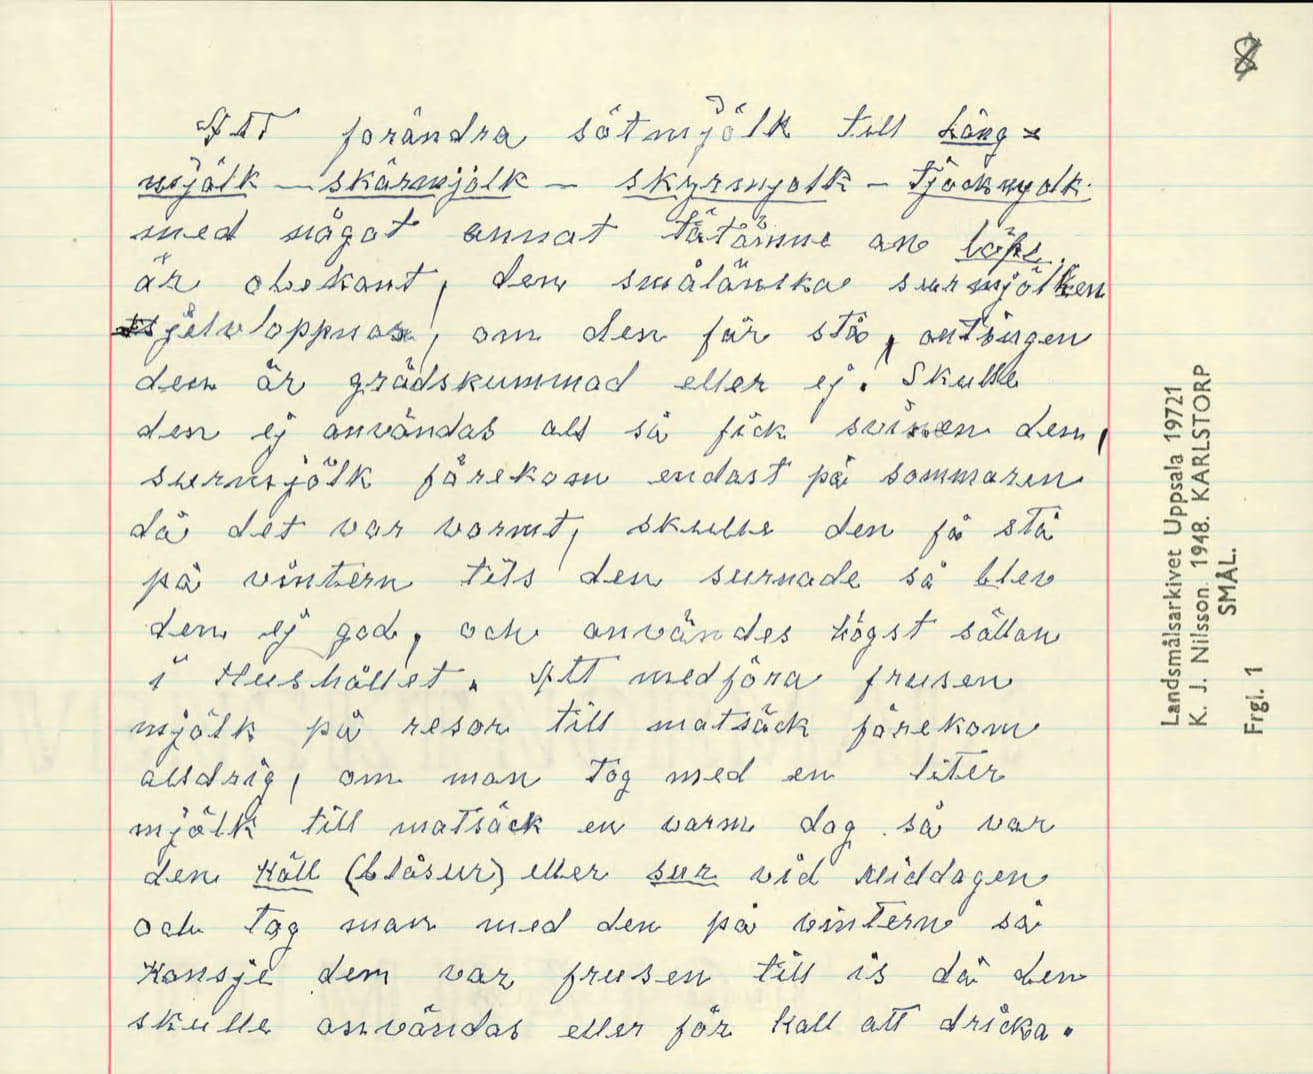 8
Att forändra sötmjölk till Lång=
mjölk – skärmjölk – skyrmjolk – Tjockmjolk
med något annat tätämne an löpe.
är obekant, den småländska surmjölken
sjelvloppnas, om den får stå, antingen
den är grädskummad eller ej. Skulle
den ej användas als så fick svinen dem,
surmjölk förekom endast på sommaren
då det var varmt, skulle den få stå
på vintern tils den surnade så blev
den ej god, och användes högst sällan
i Hushållet. Att medföra frusen
mjölk på resor till matsäck förekom
alldrig, om man Tog med en liter
mjölk till matsäck en varm dag så var
den Käll (blåsur) eller sur vid Middagen
och Tog man med den på vintern så
Kansje dem var frusen till is då den
skulle användas eller för kall att dricka.
Landsmålsarkivet Uppsala 19721
K. J. Nilsson. 1948. KARLSTORP
SMÅL.
Frgl. 1